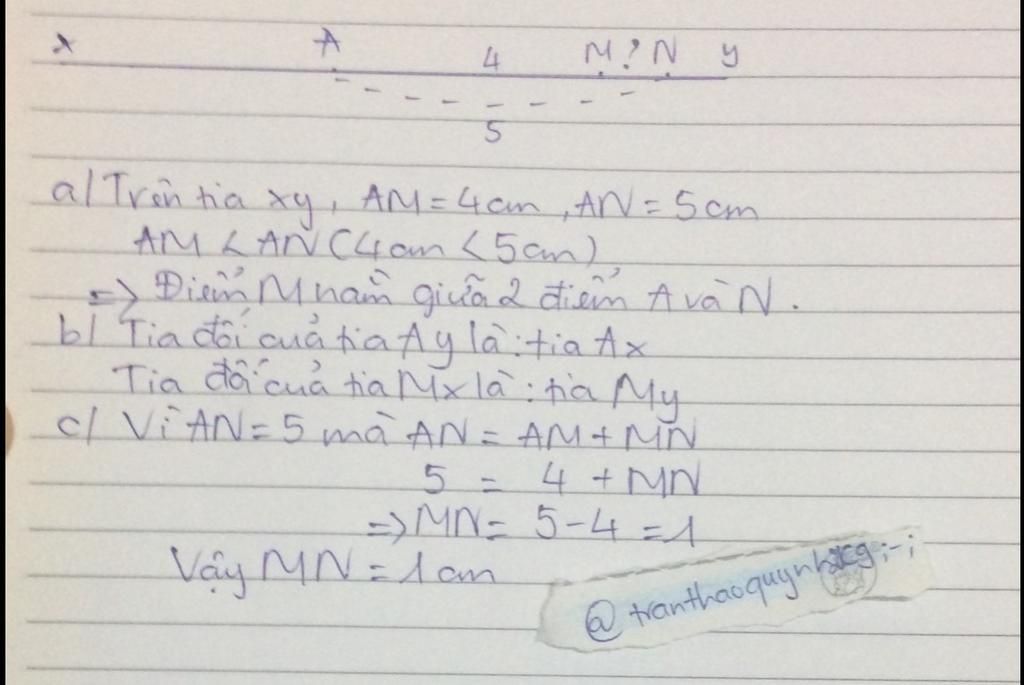 x A 4 M ? N y
5
a/ Trên tia xy, AM = 4cm, AN = 5cm
AM < AN (4cm < 5cm)
=> Điểm M nằm giữa 2 điểm A và N.
b/ Tia đối của tia Ay là: tia Ax
Tia đối của tia Mx là: tia My
c/ Vì AN = 5 mà AN = AM + MN
5 = 4 + MN
=> MN = 5 - 4 = 1
Vậy MN = 1cm